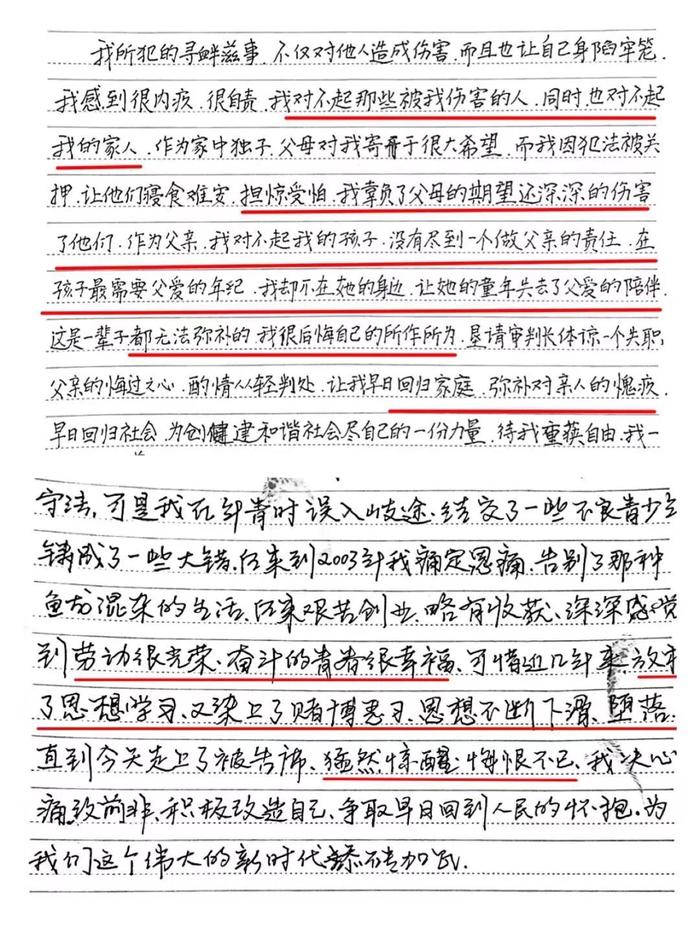 我所犯的寻衅滋事,不仅对他人造成伤害,而且也让自己身陷牢笼.
我感到很内疚,很自责,我对不起那些被我伤害的人,同时,也对不起
我的家人,作为家中独子,父母对我寄予很大希望,而我因犯法被关
押,让他们寝食难安,担惊受怕,我辜负了父母的期望还深深的伤害
了他们,作为父亲,我对不起我的孩子,没有尽到一个做父亲的责任,在
孩子最需要父爱的年纪,我却不在她的身边,让她的童年失去了父爱的陪伴.
这是一辈子都无法弥补的,我很后悔自己的所作所为,恳请审判长体谅一个失职
父亲的悔过之心,酌情从轻判处,让我早日回归家庭,弥补对亲人的愧疚,
早日回归社会,为创建和谐社会尽自己的一份力量,待我重获自由,我一
守法,可是我在年青时误入岐途.结交了一些不良青少
铸成了一些大错,后来到2003年我痛定思痛,告别了那种
鱼龙混杂的生活,后来艰苦创业,略有收获、深深感觉
到劳动很光荣、奋斗的青春很幸福、可惜近几年来放弃
了思想学习、又染上了赌博恶习、思想不断下滑、堕落
直到今天走上了被告席、猛然惊醒、悔恨不已、我决心
痛改前非、积极改造自己、争取早日回到人民的怀抱,为
我们这个伟大的新时代添砖加瓦.